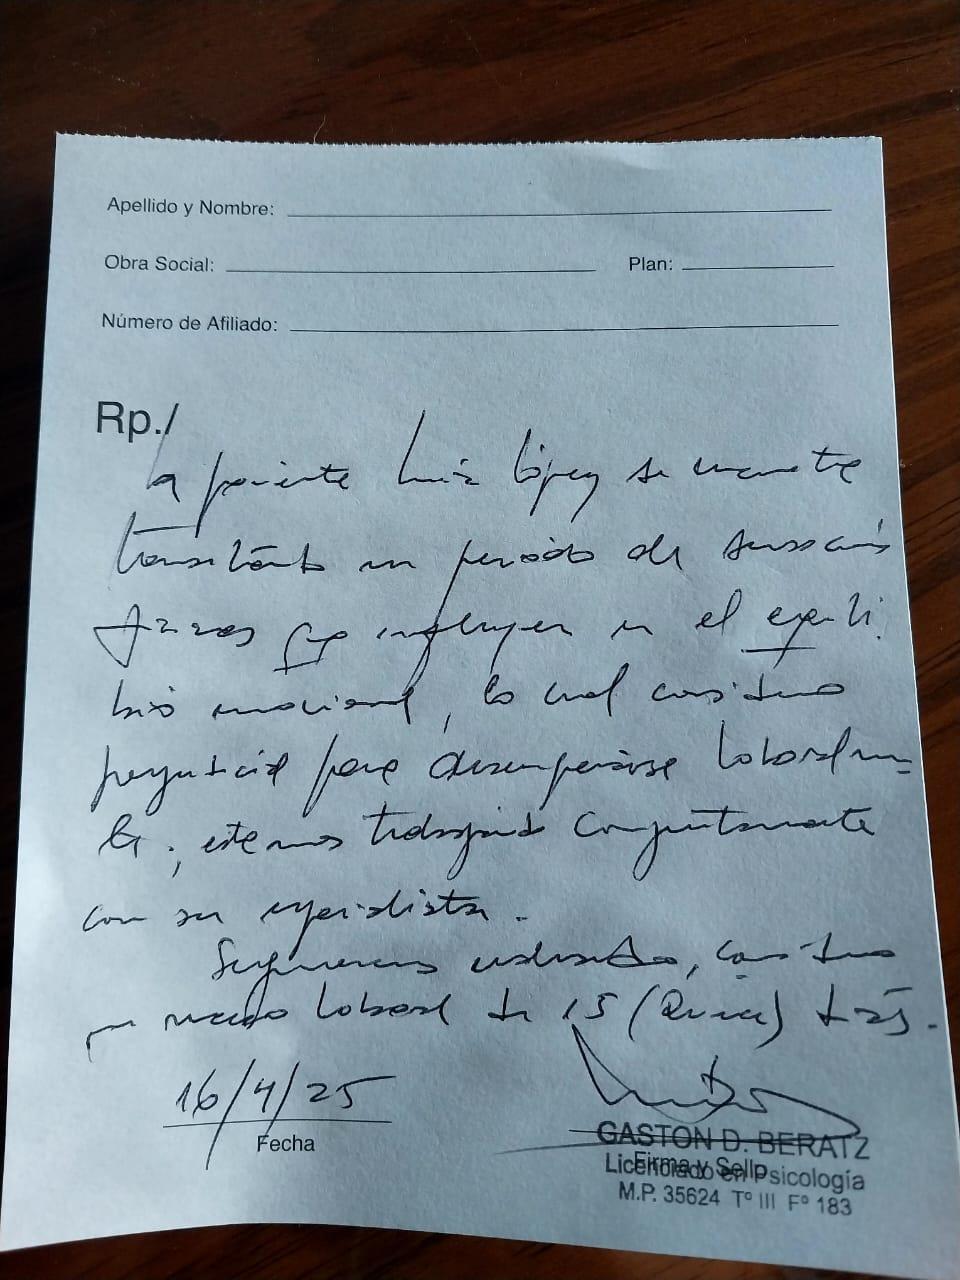 Apellido y Nombre:
Obra Social: Plan:
Número de Afiliado:
Rp./
la paciente López se encuentra
transitando un período de
que influyen en el equili
brio emocional, lo cual considero
perjudicial para desempeñarse laboralmen
te, estamos trabajando conjuntamente
con su especialista.
Seguimos evaluando, considero
un receso laboral de 15 (Quince) días.
16/4/25
Fecha
GASTON D. BERATZ
Firma y Sello
Licenciado en Psicología
M.P. 35624 Tº III Fº 183